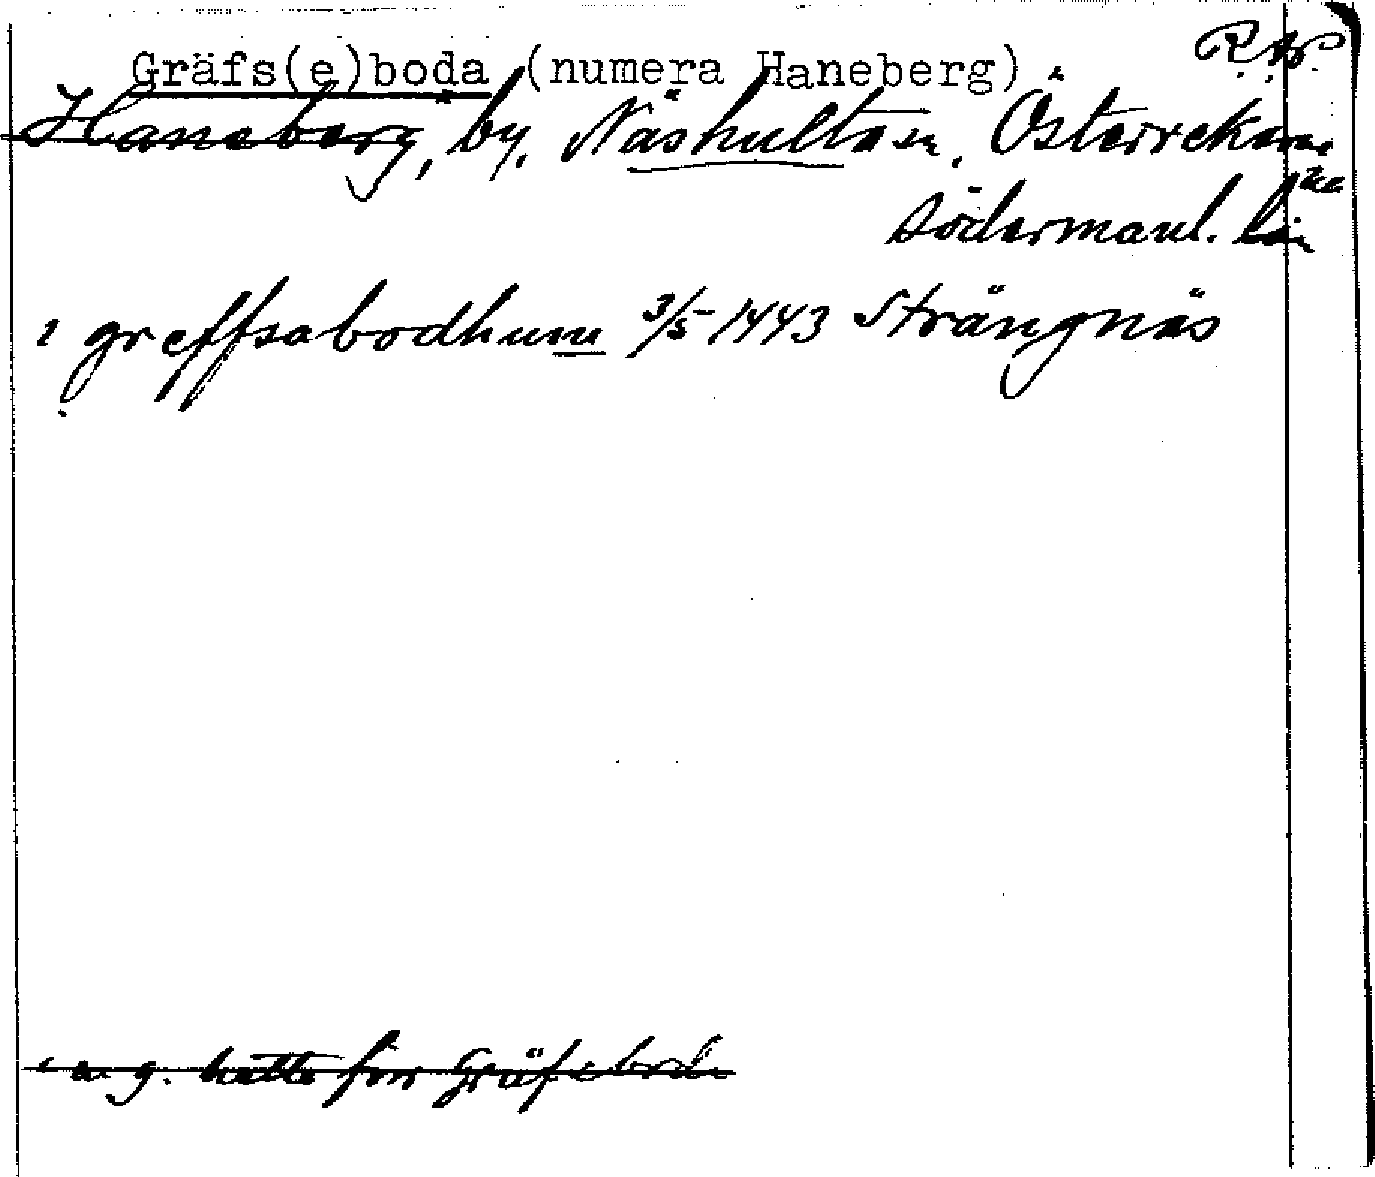 Gräfs(e)boda (numera Haneberg) R.A.
Haneberg, by, Näshulta sn, Österrekarne
Södermanl. län
i greffsabodhum 3/5 1443 Strängnäs
hette förr Gräfseboda